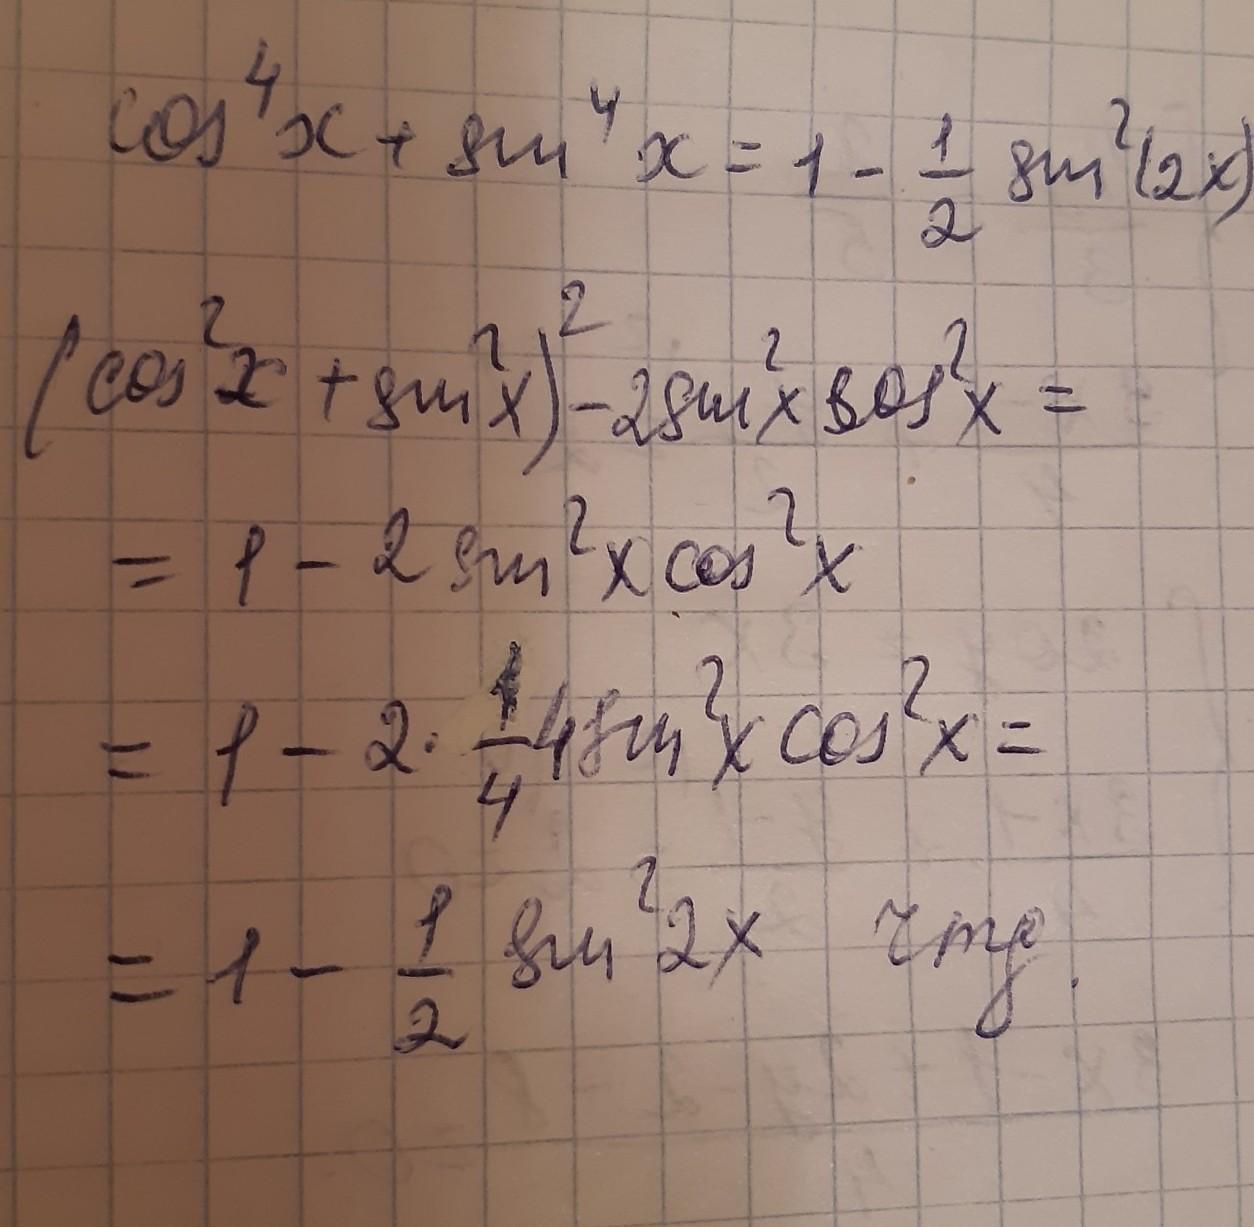 cos⁴x + sin⁴x = 1 - 1/2 sin²(2x)
(cos²x + sin²x)² - 2sin²x cos²x =
= 1 - 2 sin²x cos²x
= 1 - 2 · 1/4 4sin²x cos²x =
= 1 - 1/2 sin²2x чтд.